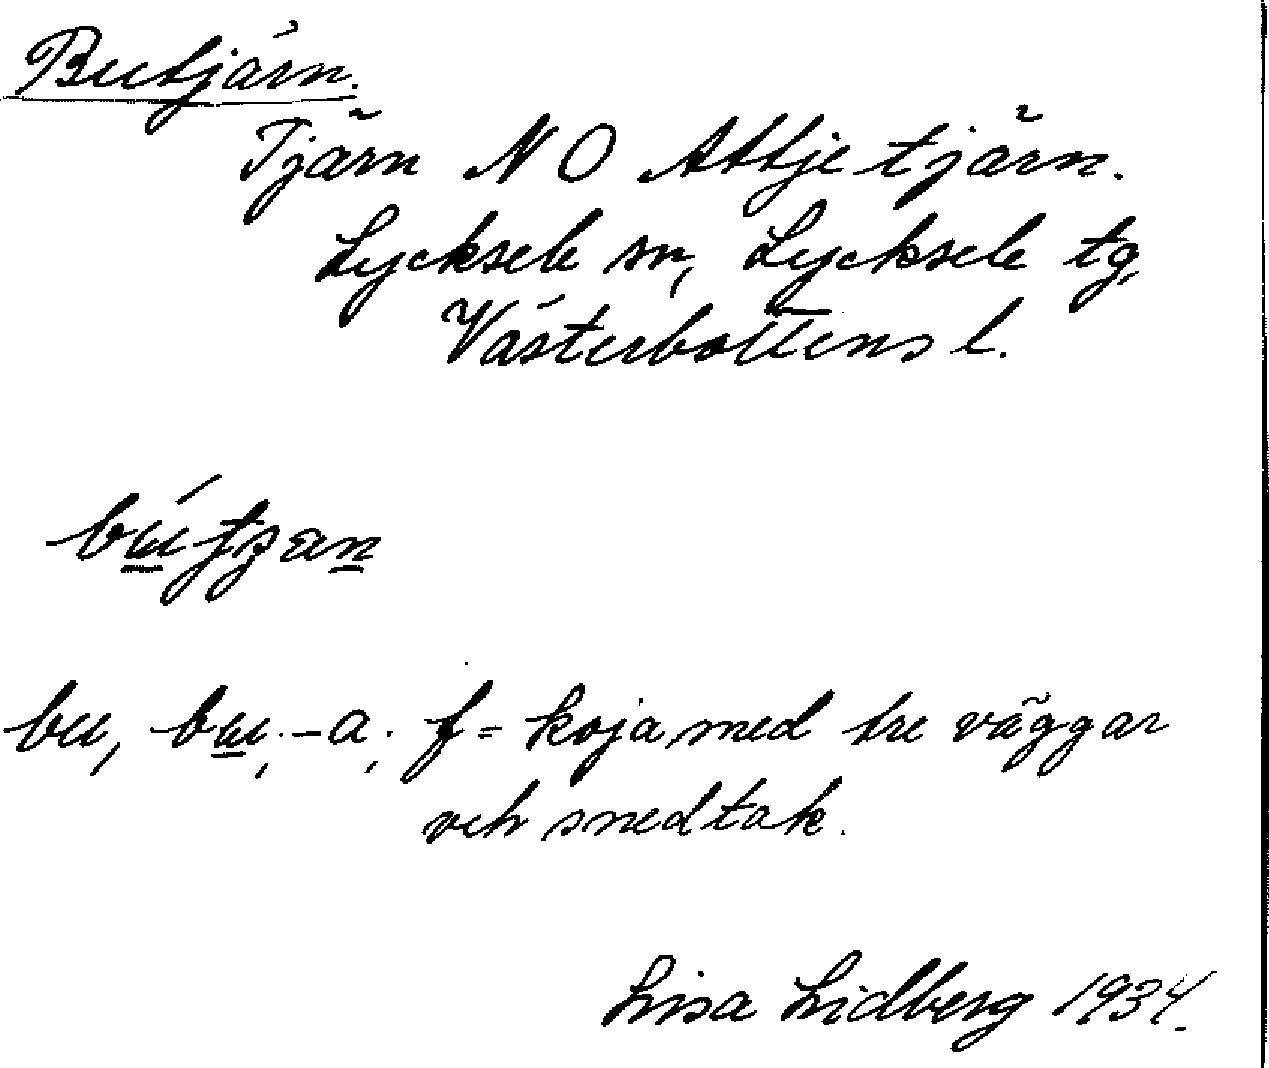 Butjärn.
Tjärn N O Attjetjärn.
Lycksele sn, Lycksele tg,
Västerbottens l.
bu, bu, -a, f = koja med tre väggar
och snedtak.
Lisa Lidberg 1934.